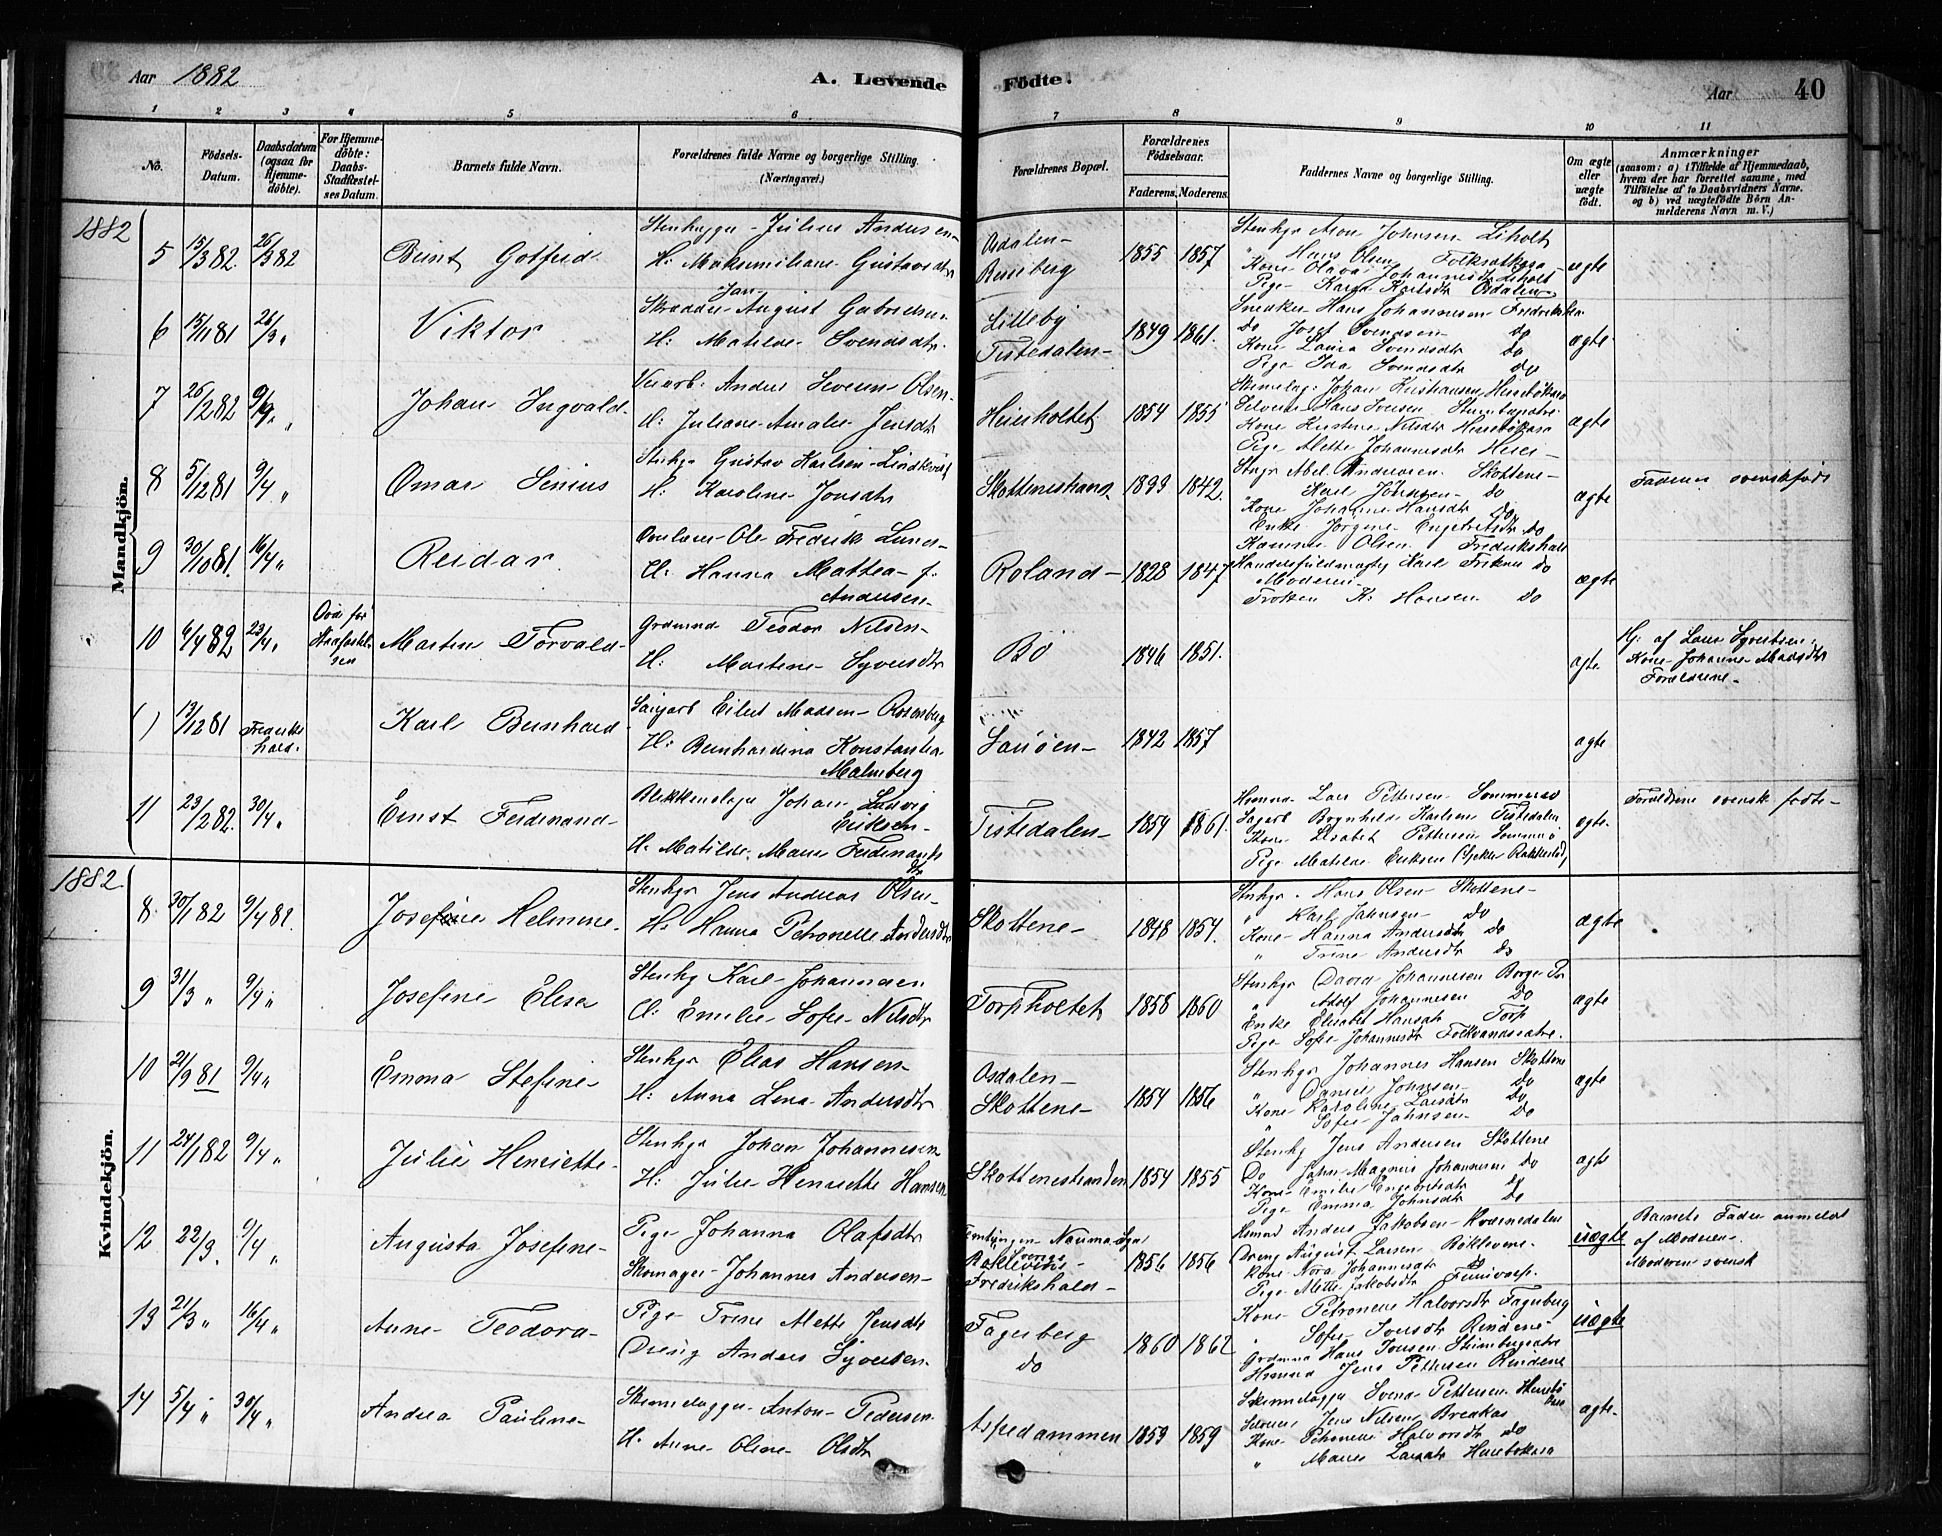 Aar 1882
A. Levende Födte.
Aar 40
1 2 3 4 5 6 7 8 9 10 11
No.
Födsels-Datum.
Daabsdatum (ogsaa for Hjemmedöbte).
For Hjemmedöbte: Daabs-Stadfæstelses Datum.
Barnets fulde Navn.
Forældrenes fulde Navne og borgerlige Stilling. (Næringsvei.)
Forældrenes Bopæl.
Forældrenes Födselsaar.
Faderens. Moderens.
Faddernes Navne og borgerlige Stilling.
Om ægte eller uægte födt.
Anmærkninger
(saasom: a) i Tilfælde af Hjemmedaab, hvem der har forrettet samme, med Tilföielse af to Daabsvidners Navne. og b) ved uægtefödte Börn Anmelderens Navn m. V.)
Mandkjön.
1882
5 15/3 82 26/3 82
Bernt Gotfried
Stenhugger Julius Andersen
H: Maksimiliane Gustavsdtr
Osdalen
Berseberg
1855 1857
Hans Olsen
Kone Olava Johannesdtr Liholt
Pige Karen Karlsdtr Osdalen
ægte
6 15/11 81 26/3 "
Viktor
Skrædder Jan August Gabrielsen
H: Matilde Svendsdtr.
Lilleby
Tistedalen
1849 1861.
Snedker Hans Johannesen Fredriksha
Do Josef Svendsen do
Kone Laura Svendsdtr do
Pige Ida Svendsdtr do
ægte
7 26/2 82 9/4 "
Johan Ingvald
Anders Severin Olsen
H: Juliane Amalie Jensdtr
1854 1855
Johan Kristiansen
Hans Iversen
Kone Kristine Nilsdtr
Pige Alette Johannesdtr
ægte
8 5/12 81 9/4 "
Omar Senius
Stenhgr Gustav Karlsen Lindkvist
H: Karoline Jonsdtr
Skottenestrand
1842.
Stngr Abel Andersen Skottene
Karl Johnsen do
Kone Johanne Hansdtr do
Enke Jörgine Engebretsdtr do
ægte
Faderen svenskfödt
9 30/10 81. 16/4 "
Reidar
Ole Fredrik Lunde
H: Hanna Mattea f. Andersen
Roland
1828 1847
Olsen Fredrikshald
Handelsfuldmægtig Karl Eriksen do
Moderen
Fröken K. Hansen do
ægte
10 6/4 82 23/4 "
Martin Torvald
Grdmnd Teodor Nilsen
H: Martine Syversdtr
Bö
1846 1851.
ægte
Hj: af Lars Syvertsen
Kone Johanne Madsdtr
Forældrene
( ) 13/12 81
Fredrikshald.
Karl Bernhard
Eilert Madsen Rosenberg
H: Bernhardina Konstantia Malmberg
Sauöen
1842 1857
ægte
11 23/2 82. 30/4 "
Ernst Ferdinand
Blikkenslager Johan Ludvig Eriksen
H. Matilde Marie Ferdinands dtr
Tistedalen
1854 1861.
Lars Pettersen Sommerö
Karlsen Tistedalen
Kone Elsabet Pettersen Sommerö
Pige Matilde Eriksen
ægte
Forældrene svensk födte
Kvindekjön.
1882
8 30/1 82 9/4 82.
Josefine Helmine.
Stenhgr Jens Andreas Olsen
H: Hanna Petronelle Andersdtr
Skottene
1848 1854.
Stenhgr. Hans Olsen Skottene
" Karl Johnsen do
Kone Hanna Andersdtr do
" Trine Andersdtr do
ægte
9 31/3 " 9/4 "
Josefine Elisa
Stenhg Karl Johannesen
H: Emilie Sofie Nilsdtr
Torpholtet
1858 1860
Stenhgr David Johannesen
" Adolf Johannesen do
Enke Elisabet Hansdtr Torp
Pige Sofie Johannesdtr
ægte
10 21/9 81 9/4 "
Emma Stefine
Stenhgr Elias Hansen
H: Anna Lena Andersdtr
Osdalen
Skottene
1854 1856
Stenhgr Johannes Hansen Skottene
" Daniel Johnsen do
Kone Karoline Larsdtr do
" Sofie Johnsen do
ægte
11 24/1 82 9/4 "
Julie Henriette
Stenhgr Johan Johannesen
H: Julie Henriette Hansen
Skottenestranden
1854 1855
Stenhg Jens Andersen Skottene
Do John Magnus Johannesen do
Kone Emilie Engebretsdtr do
Pige Emma Johnsdtr do
ægt
12 22/3. 9/4 "
Augusta Josefine
Pige Johanna Olafsdtr
Skomager Johannes Andersen
Fredrikshald
1856 1856
Anders Jakobsen
Dreng August Larsen Böklevene
Kone Nora Johannesdtr do
Pige Mette Jakobsdtr
uægte
Barnets Fader anmeldt
af Moderen.
Moderen svensk
13 21/3 " 16/4 "
Anne Teodora
Pige Trine Alette Jensdtr
Dreng Anders Syversen
Fagerberg
do
1860 1862
Kone Petronelle Halvorsdtr Fagerberg
" Sofie Iversdtr Rindene
Grdmnd Hans Iversen
Jens Pettersen Rindene
uægte
14 5/4 " 30/4 "
Andrea Pauline
Skindlogger Anton Pedersen
H. Anne Oline Olsdtr
Aspedammen
1859 1859
Svend Pettersen
Jens Nilsen
Kone Petronelle Halvorsdtr do
" Maren Larsdtr
ægte